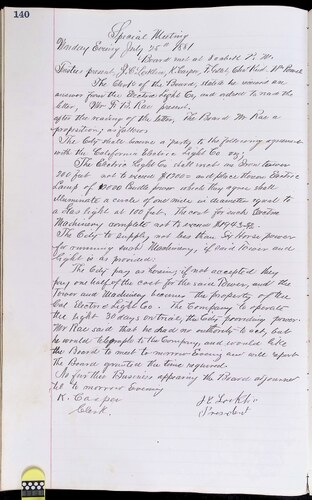 140
Special Meeting
Monday Evening July 25th 1881
Board met at
present, J. Lecklin, K. Casper,
The Clerk of the Board, stated he received an
answer from the Electric Light Co, and asked to read the
letter, Mr Rae present.
after the reading of the letter, The Board Mr Rae a
proposition, as follows
The City shall become a party to the following agreement
with the California Electric Light Co viz:
The Electric Light Co shall erect an Iron tower
200 feet not to exceed $1500= and place thereon Electric
Lamp of Candle power which they agree shall
illuminate a circle of one mile in diameter equal to
a Gas light at 100 feet. The cost for such Electric
Machinery complete not to exceed
The City to supply not less than Six Horse power
for running such Machinery, if said Tower and
Light is as provided.
The City pay as if not accepted they
pay one half of the cost for the said Tower, and the
Tower and Machinery becomes the property of the
Cal Electric Light Co. The Company to operate
the Light 30 days on trial, the City providing power.
Mr Rae said that he had no authority to act, but
he would telegraph to the Company, and would like
the Board to meet to-morrow Evening and will report
the Board granted the time required.
No further Business appearing the Board adjourned
till to morrow Evening
K. Casper
Clerk.
President